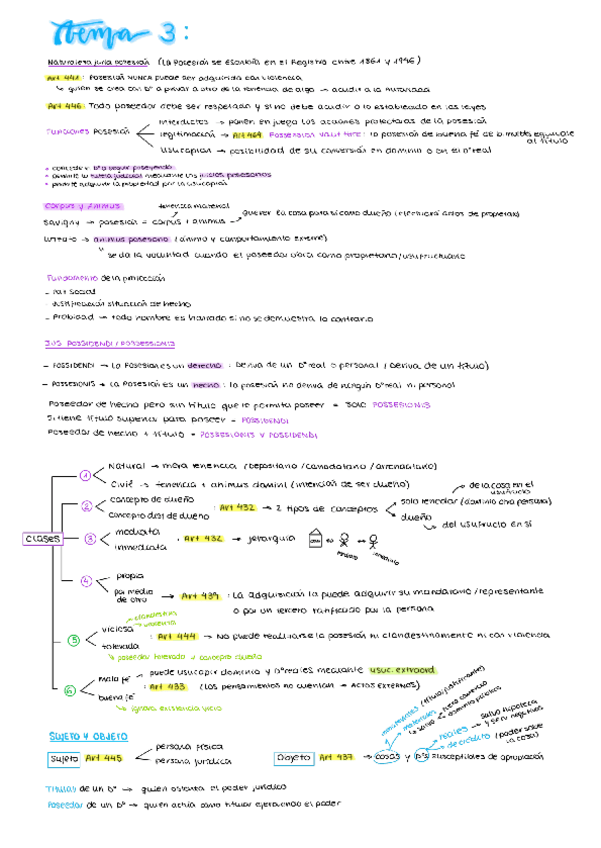 Tema 3:
Naturaleza jurid posesión (La Posesión se escribía en el Registro entre 1861 y 1946)
Art 441: Posesión NUNCA puede ser adquirida con violencia
↳ quien se crea con dº a privar a otro de la tenencia de algo → acudir a la autoridad
Art 446: Todo poseedor debe ser respetado y si no debe acudir a lo establecido en las leyes
FUNCIONES POSESIÓN
interdictos → ponen en juego las acciones protectoras de la posesión
legitimación → Art 464 Possession vaut titre: la posesión de buena fe de b muebles equivale al título
usucapion → posibilidad de su conversión en dominio o en el dº real
• conceder el dº a seguir poseyendo
• mediante los juicios posesorios
• permite adquirir la propiedad por la usucapión
Corpus y Animus
tenencia material
Savigny → posesión = corpus + animus → querer la cosa para sí como dueño
→ animus posesorio (ánimo y comportamiento externo)
se da la voluntad cuando el poseedor obra como propietario/usufructuario
Fundamento de la protección
- Paz social
- situación de hecho
- Probidad → todo hombre es honrado si no se demuestra lo contrario
IUS POSSIDENDI / POSSESSIONIS
- POSSIDENDI → La Posesión es un derecho: Deriva de un dº real o personal (Deriva de un título)
- POSSESIONIS → La Posesión es un hecho: la posesión no deriva de ningún dº real ni personal
Poseedor de hecho pero sin título que le permita poseer = SOLO POSSESIONIS
Si tiene título superior para poseer = POSSIDENDI
Poseedor de hecho + título = POSSESIONIS Y POSSIDENDI
clases
1
Natural → mera tenencia (depositario/comodatario/arrendatario)
Civil → tenencia + animus domini (intención de ser dueño)
2
concepto de dueño
concepto dist de dueño
: Art 432 → 2 tipos de conceptos
solo tenedor (dominio otra persona)
de la cosa en el usufructo
dueño
del usufructo en sí
3
mediata
inmediata
: Art 432 → jerarquía
4
propia
por medio de otro → Art 439: La adquisición la puede adquirir su mandatario/representante
o por un tercero ratificado por la persona
5
viciosa
tolerada
: Art 444 → No puede realizarse la posesión ni clandestinamente ni con violencia
poseedor tolerado y concepto dueño
6
mala fe → puede usucapir dominio y dº reales mediante usuc. extraord
buena fe
: Art 433 (los pensamientos no cuentan → ACTOS EXTERNOS)
ignora existencia vicio
SUJETO Y OBJETO
Sujeto Art 445
persona física
persona jurídica
Objeto Art 437 → cosas y dºs susceptibles de apropiación
materiales
reales → salvo hipoteca y serv negativas
de crédito (poder sobre la cosa)
Titular de un dº → quien ostenta el poder jurídico
Poseedor de un dº → quien actúa como titular ejerciendo el poder